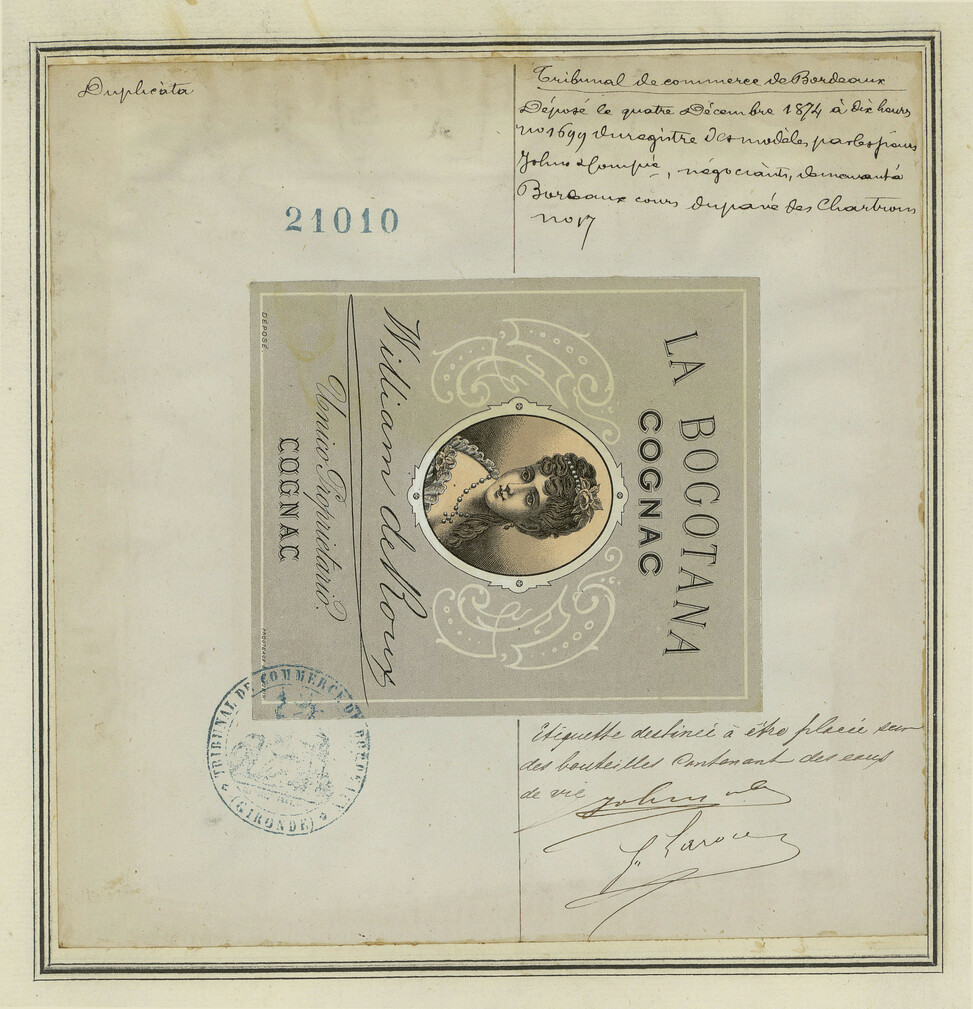 Duplicata
Tribunal de commerce de Bordeaux
Déposé le quatre Décembre 1874 à dix heures
no 1699 du registre des modèles par les sieurs
Johns & Compie, négociants, demeurant à
Bordeaux cours du pavé des Chartrons
no 17
21010
LA BOGOTANA
COGNAC
William de Roux
Unico Proprietario.
COGNAC
DÉPOSÉ.
TRIBUNAL DE COMMERCE DE BORDEAUX
(GIRONDE)
Etiquette destinée à être placée sur
des bouteilles contenant des eaux
de vie